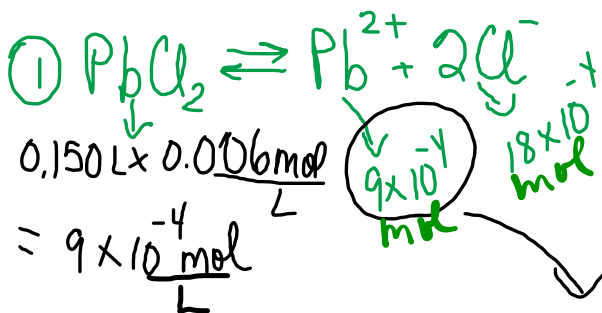 ① PbCl₂ ⇌ Pb²⁺ + 2Cl⁻
0.150L x 0.006mol/L 9x10⁻⁴ mol 18x10⁻⁴ mol
= 9 x 10⁻⁴ mol/L